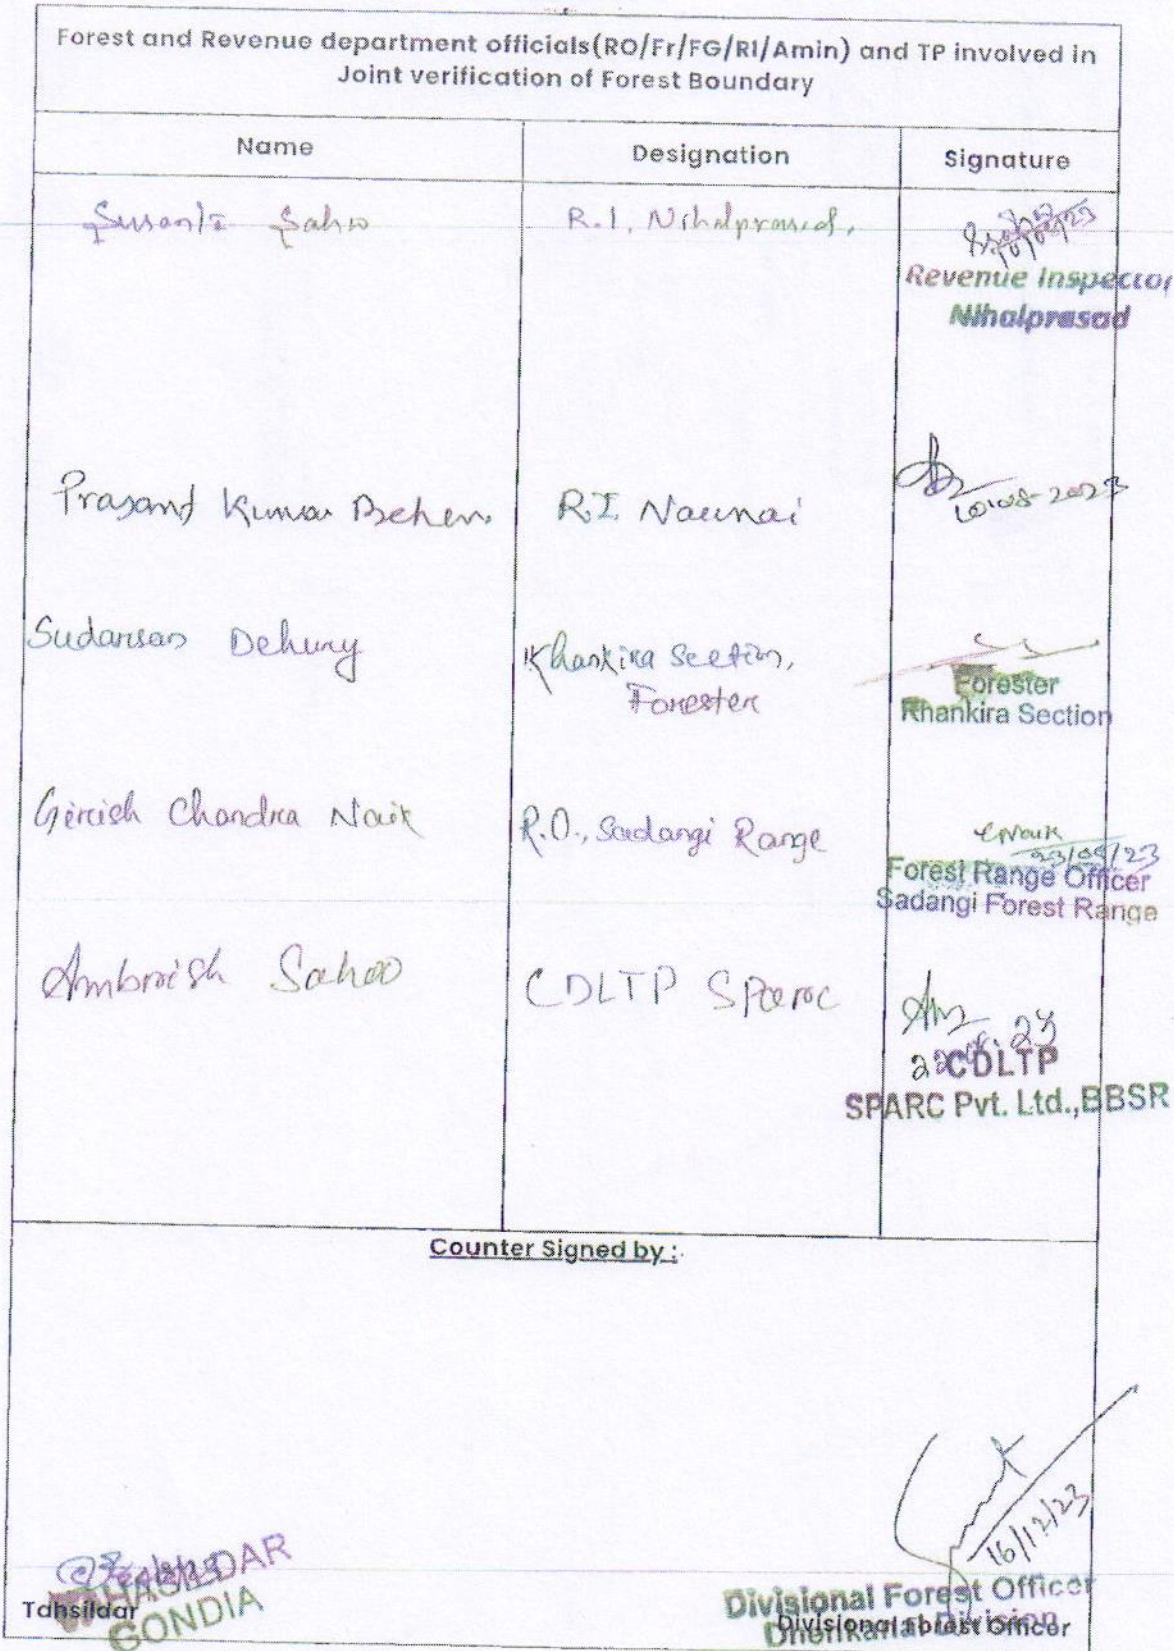 Forest and Revenue department officials(RO/Fr/FG/RI/Amin) and TP involved in
Joint verification of Forest Boundary
Name Designation Signature
Susanta Sahoo R.I, Nihalprasad,
Revenue Inspector
Nihalprasad
Prasant Kumar R.I. Naunai
10-08-2023
Sudarsan Dehury Khankira Section,
Forester
Forester
Khankira Section
Girish Chandra Naik R.O., Sadangi Range
23/09/23
Forest Range Officer
Sadangi Forest Range
Ambrish Sahoo CDLTP Sparc
CDLTP
SPARC Pvt. Ltd.,BBSR
Counter Signed by :
16/12/23
TAHASILDAR
GONDIA
Tahsildar
Divisional Forest Officer
Dhenkanal Division
Divisional Forest Officer